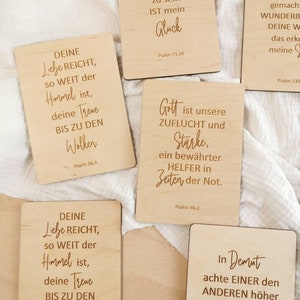 DEINE
Liebe REICHT,
so WEIT der
Himmel ist,
deine Treue
BIS ZU DEN
Wolken
Psalm 36,6
IST mein
Glück
Psalm 73,28
gemach
WUNDERB
DEINE W
das erke
meine S
Psalm 13
Gott ist unsere
ZUFLUCHT und
Stärke,
ein bewährter
HELFER in
Zeiten der Not.
Psalm 46,2
DEINE
Liebe REICHT,
so WEIT der
Himmel ist,
deine Treue
BIS ZU DEN
In Demut
achte EINER den
ANDEREN höher